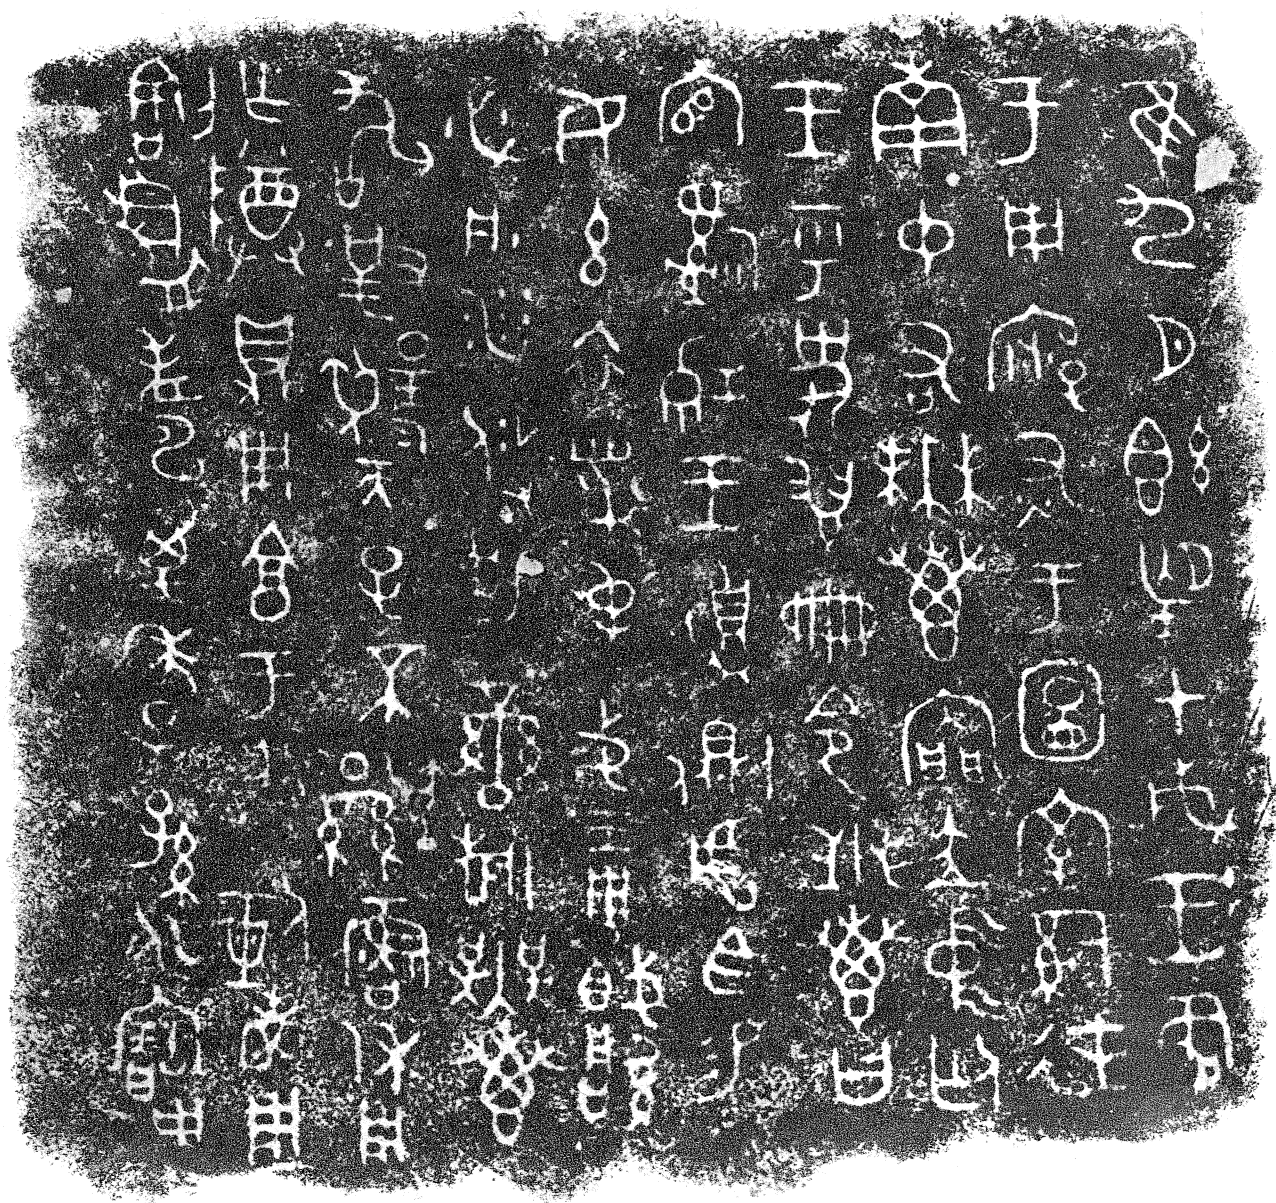 隹九月既望甲戌王各
于周廟述于圖室嗣徒
南中右無叀內門立中廷
王乎史翏冊令無叀曰
官嗣穆王遉側虎臣易
女玄衣黹屯戈琱㦸厚必彤
沙攸勒䜌旂無叀
敢對揚天子不顯魯休用
乍尊鼎用享于朕剌考用
割眉壽萬年子孫永寶用